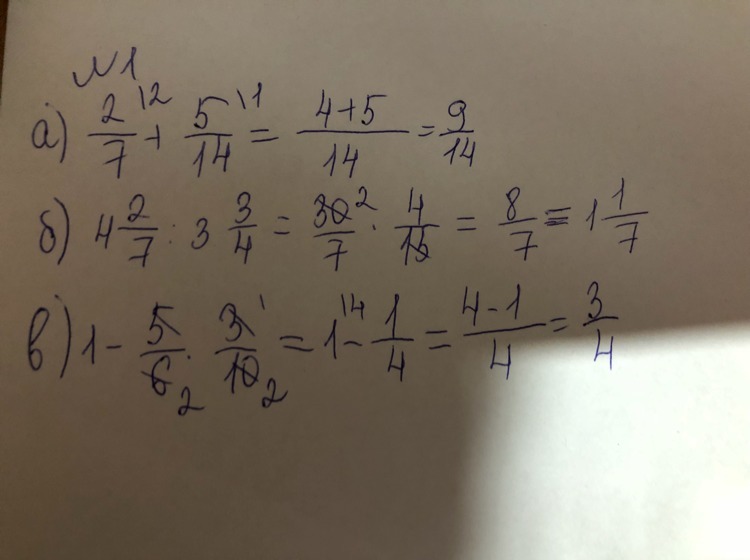 №1
а) 2/7 \2 + 5/14 \1 = 4+5/14 = 9/14
б) 4 2/7 : 3 3/4 = 30/7 2 · 4/15 = 8/7 = 1 1/7
в) 1 - 5/6 2 · 3/10 1 2 = 1 \4 - 1/4 = 4-1/4 = 3/4